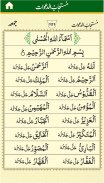 مستجاب الدعوات
اَسْمَاءُ اللهِ الْحُسْنٰى
بِسْمِ اللهِ الرَّحْمٰنِ الرَّحِيْمِ
اَلرَّحْمٰنُ جَلَّ جَلَالُهٗ اَلرَّحِيْمُ جَلَّ جَلَالُهٗ
اَلْمَلِكُ جَلَّ جَلَالُهٗ اَلْقُدُّوْسُ جَلَّ جَلَالُهٗ
اَلسَّلَامُ جَلَّ جَلَالُهٗ اَلْمُؤْمِنُ جَلَّ جَلَالُهٗ
اَلْمُهَيْمِنُ جَلَّ جَلَالُهٗ اَلْعَزِيْزُ جَلَّ جَلَالُهٗ
اَلْجَبَّارُ جَلَّ جَلَالُهٗ اَلْمُتَكَبِّرُ جَلَّ جَلَالُهٗ
اَلْخَالِقُ جَلَّ جَلَالُهٗ اَلْبَارِئُ جَلَّ جَلَالُهٗ
اَلْمُصَوِّرُ جَلَّ جَلَالُهٗ اَلْغَفَّارُ جَلَّ جَلَالُهٗ